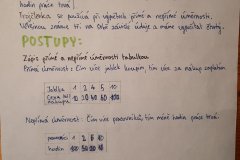 hodin práce trvá
Trojčlenka se používá při výpočtech přímé a nepřímé úměrnosti.
Většinou známe tři na sobě závislé údaje a máme vypočítat čtvrtý.
POSTUPY:
Zápis přímé a nepřímé úměrnosti tabulkou
Přímá úměrnost: čím více jablek koupím, tím více za nákup zaplatím
Jablka 1 2 4 5 10
Cena za nákup 10 20 40 50 100
Nepřímá úměrnost: čím více pracovníků, tím méně hodin práce trvá.
pracovníci 1 2 5 10
hodin 100 50 20 10